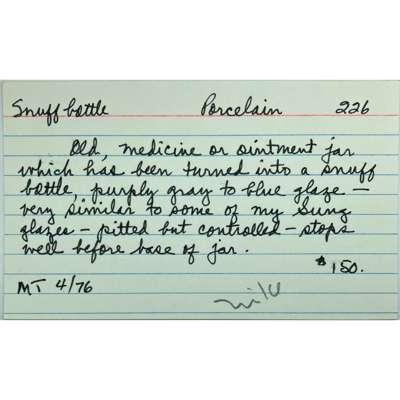 Snuff bottle Porcelain 226
Old, medicine or ointment jar
which has been turned into a snuff
bottle, purply gray to blue glaze —
very similar to some of my Sung
glazes — pitted but controlled — stops
well before base of jar.
$150.
MT 4/76